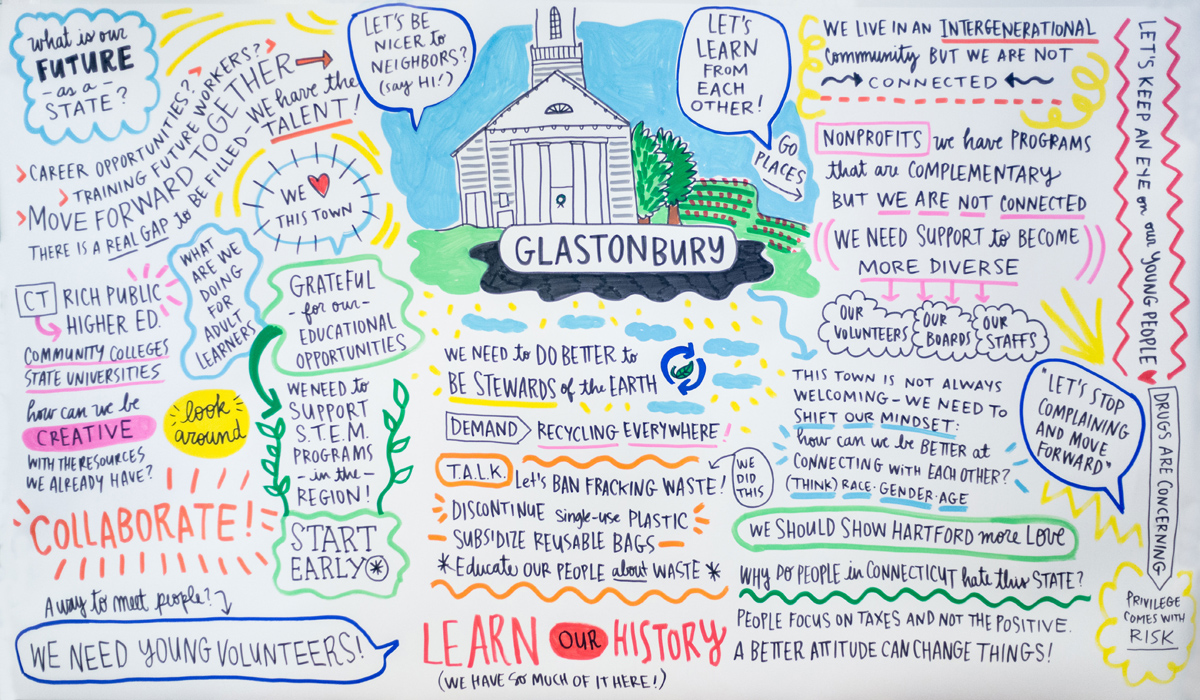 what is our
FUTURE
- as a -
STATE?
CAREER OPPORTUNITIES?
TRAINING FUTURE WORKERS?
MOVE FORWARD TOGETHER
THERE IS A REAL GAP to BE FILLED - WE have the
TALENT!
WE
THIS TOWN
CT RICH PUBLIC
HIGHER ED.
COMMUNITY COLLEGES
STATE UNIVERSITIES
WHAT
ARE WE
DOING
FOR
ADULT
LEARNERS
how can we be
CREATIVE
WITH THE RESOURCES
WE ALREADY HAVE?
look
around
COLLABORATE!
A way to meet people?
WE NEED YOUNG VOLUNTEERS!
GRATEFUL
- for our -
EDUCATIONAL
OPPORTUNITIES
WE NEED to
SUPPORT
S.T.E.M.
PROGRAMS
- in the -
REGION!
START
EARLY
LET'S BE
NICER to
NEIGHBORS?
(say HI!)
LET'S
LEARN
FROM
EACH
OTHER!
GO
PLACES
GLASTONBURY
WE NEED to DO BETTER to
BE STEWARDS of the EARTH
DEMAND RECYCLING EVERYWHERE!
T.A.L.K. Let's BAN FRACKING WASTE!
WE
DID
THIS
DISCONTINUE single-use PLASTIC
SUBSIDIZE REUSABLE BAGS
*Educate OUR PEOPLE about WASTE *
LEARN OUR HISTORY
(WE HAVE SO MUCH OF IT HERE!)
WE LIVE IN AN INTERGENERATIONAL
Community BUT WE ARE NOT
CONNECTED
NONPROFITS we have PROGRAMS
that are COMPLEMENTARY
BUT WE ARE NOT CONNECTED
WE NEED SUPPORT to BECOME
MORE DIVERSE
OUR
VOLUNTEERS
OUR
BOARDS
OUR
STAFFS
THIS TOWN IS NOT ALWAYS
WELCOMING - WE NEED TO
SHIFT OUR MINDSET:
how can we be BETTER at
CONNECTING WITH EACH OTHER?
(THINK) RACE · GENDER · AGE
WE SHOULD SHOW HARTFORD more LOVE
WHY DO PEOPLE in CONNECTICUT hate this STATE?
PEOPLE FOCUS ON TAXES AND NOT THE POSITIVE.
A BETTER ATTITUDE CAN CHANGE THINGS!
LET'S KEEP AN EYE on our YOUNG PEOPLE
"LET'S STOP
COMPLAINING
AND MOVE
FORWARD"
DRUGS ARE CONCERNING
PRIVILEGE
COMES WITH
RISK